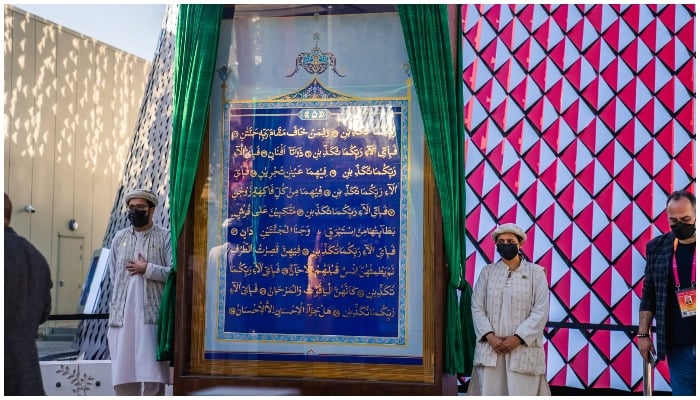 رَبِّكُمَا تُكَذِّبٰنِ ۝ وَلِمَنْ خَافَ مَقَامَ رَبِّهٖ جَنَّتٰنِ ۝
فَبِاَيِّ اٰلَآءِ رَبِّكُمَا تُكَذِّبٰنِ ۝ ذَوَاتَاۤ اَفْنَانٍ ۝ فَبِاَيِّ اٰلَآءِ
رَبِّكُمَا تُكَذِّبٰنِ ۝ فِيْهِمَا عَيْنٰنِ تَجْرِيٰنِ ۝ فَبِاَيِّ
اٰلَآءِ رَبِّكُمَا تُكَذِّبٰنِ ۝ فِيْهِمَا مِنْ كُلِّ فَاكِهَةٍ زَوْجٰنِ ۝
فَبِاَيِّ اٰلَآءِ رَبِّكُمَا تُكَذِّبٰنِ ۝ مُتَّكِـِٕيْنَ عَلٰى فُرُشٍۭ
بَطَآئِنُهَا مِنْ اِسْتَبْرَقٍ ؕ وَجَنَا الْجَنَّتَيْنِ دَانٍ ۝
فَبِاَيِّ اٰلَآءِ رَبِّكُمَا تُكَذِّبٰنِ ۝ فِيْهِنَّ قٰصِرٰتُ الطَّرْفِ ۙ
لَمْ يَطْمِثْهُنَّ اِنْسٌ قَبْلَهُمْ وَلَا جَآنٌّ ۝ فَبِاَيِّ اٰلَآءِ رَبِّكُمَا
تُكَذِّبٰنِ ۝ كَاَنَّهُنَّ الْيَاقُوْتُ وَالْمَرْجَانُ ۝ فَبِاَيِّ اٰلَآءِ
رَبِّكُمَا تُكَذِّبٰنِ ۝ هَلْ جَزَآءُ الْاِحْسَانِ اِلَّا الْاِحْسَانُ ۝